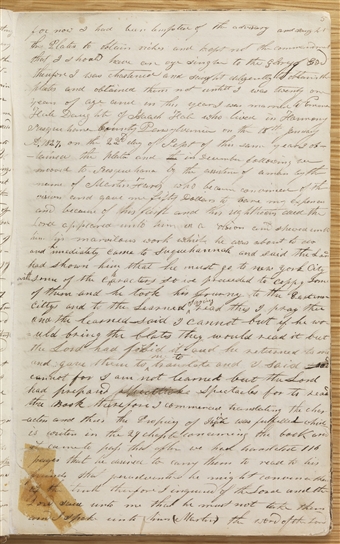 for now I had been tempted of the advisary and saught
the Plates to obtain riches and kept not the commandment
that I should have an eye single to the glory of God
therefore I was chastened and saught diligently to obtain the
plates and obtained them not untill I was twenty one
years of age and in this year I was married to Emma
Hale Daughtr of Isaach Hale who lived in Harmony
Susquehana County Pensylvania on the 18th January
AD. 1827, on the 22d day of Sept of this same year I ob-
tained the plates and in December following we
mooved to Susquehana by the assistence of a man by the
name of Martin Harris who became convinced of the
vision and gave me fifty Dollars to bare my expences
and because of his faith and this righteous deed the
Lord appeared unto him in a vision and shewed unto
him his marvilous work which he was about to do
and imediately came to Suquehannah and said the Lord
had shown him that he must go to new York City
with some of the characters so we proceeded to coppy some
of them and he took his Journy to the Eastern
Cittys and to the Learned saying read this I pray thee
and the learned said I cannot but if he wo-
uld bring the plates they would read it but
the Lord had forbid it and he returned to me
and gave them to me to translate and I said
cannot for I am not learned but the Lord
had prepared spectacles for to read
the Book therefore I commenced translating the char-
acters and thus the Prophicy of Isiaah was fulfilled which
is writen in the 29 chapter concerning the book and
it came to pass that after we had translated 116
pages that he desired to carry them to read to his
friends that peradventure he might convince them
of the truth therefore I inquired of the Lord and the
Lord said unto me that he must not take them
and I spake unto him (Martin) the word of the Lord